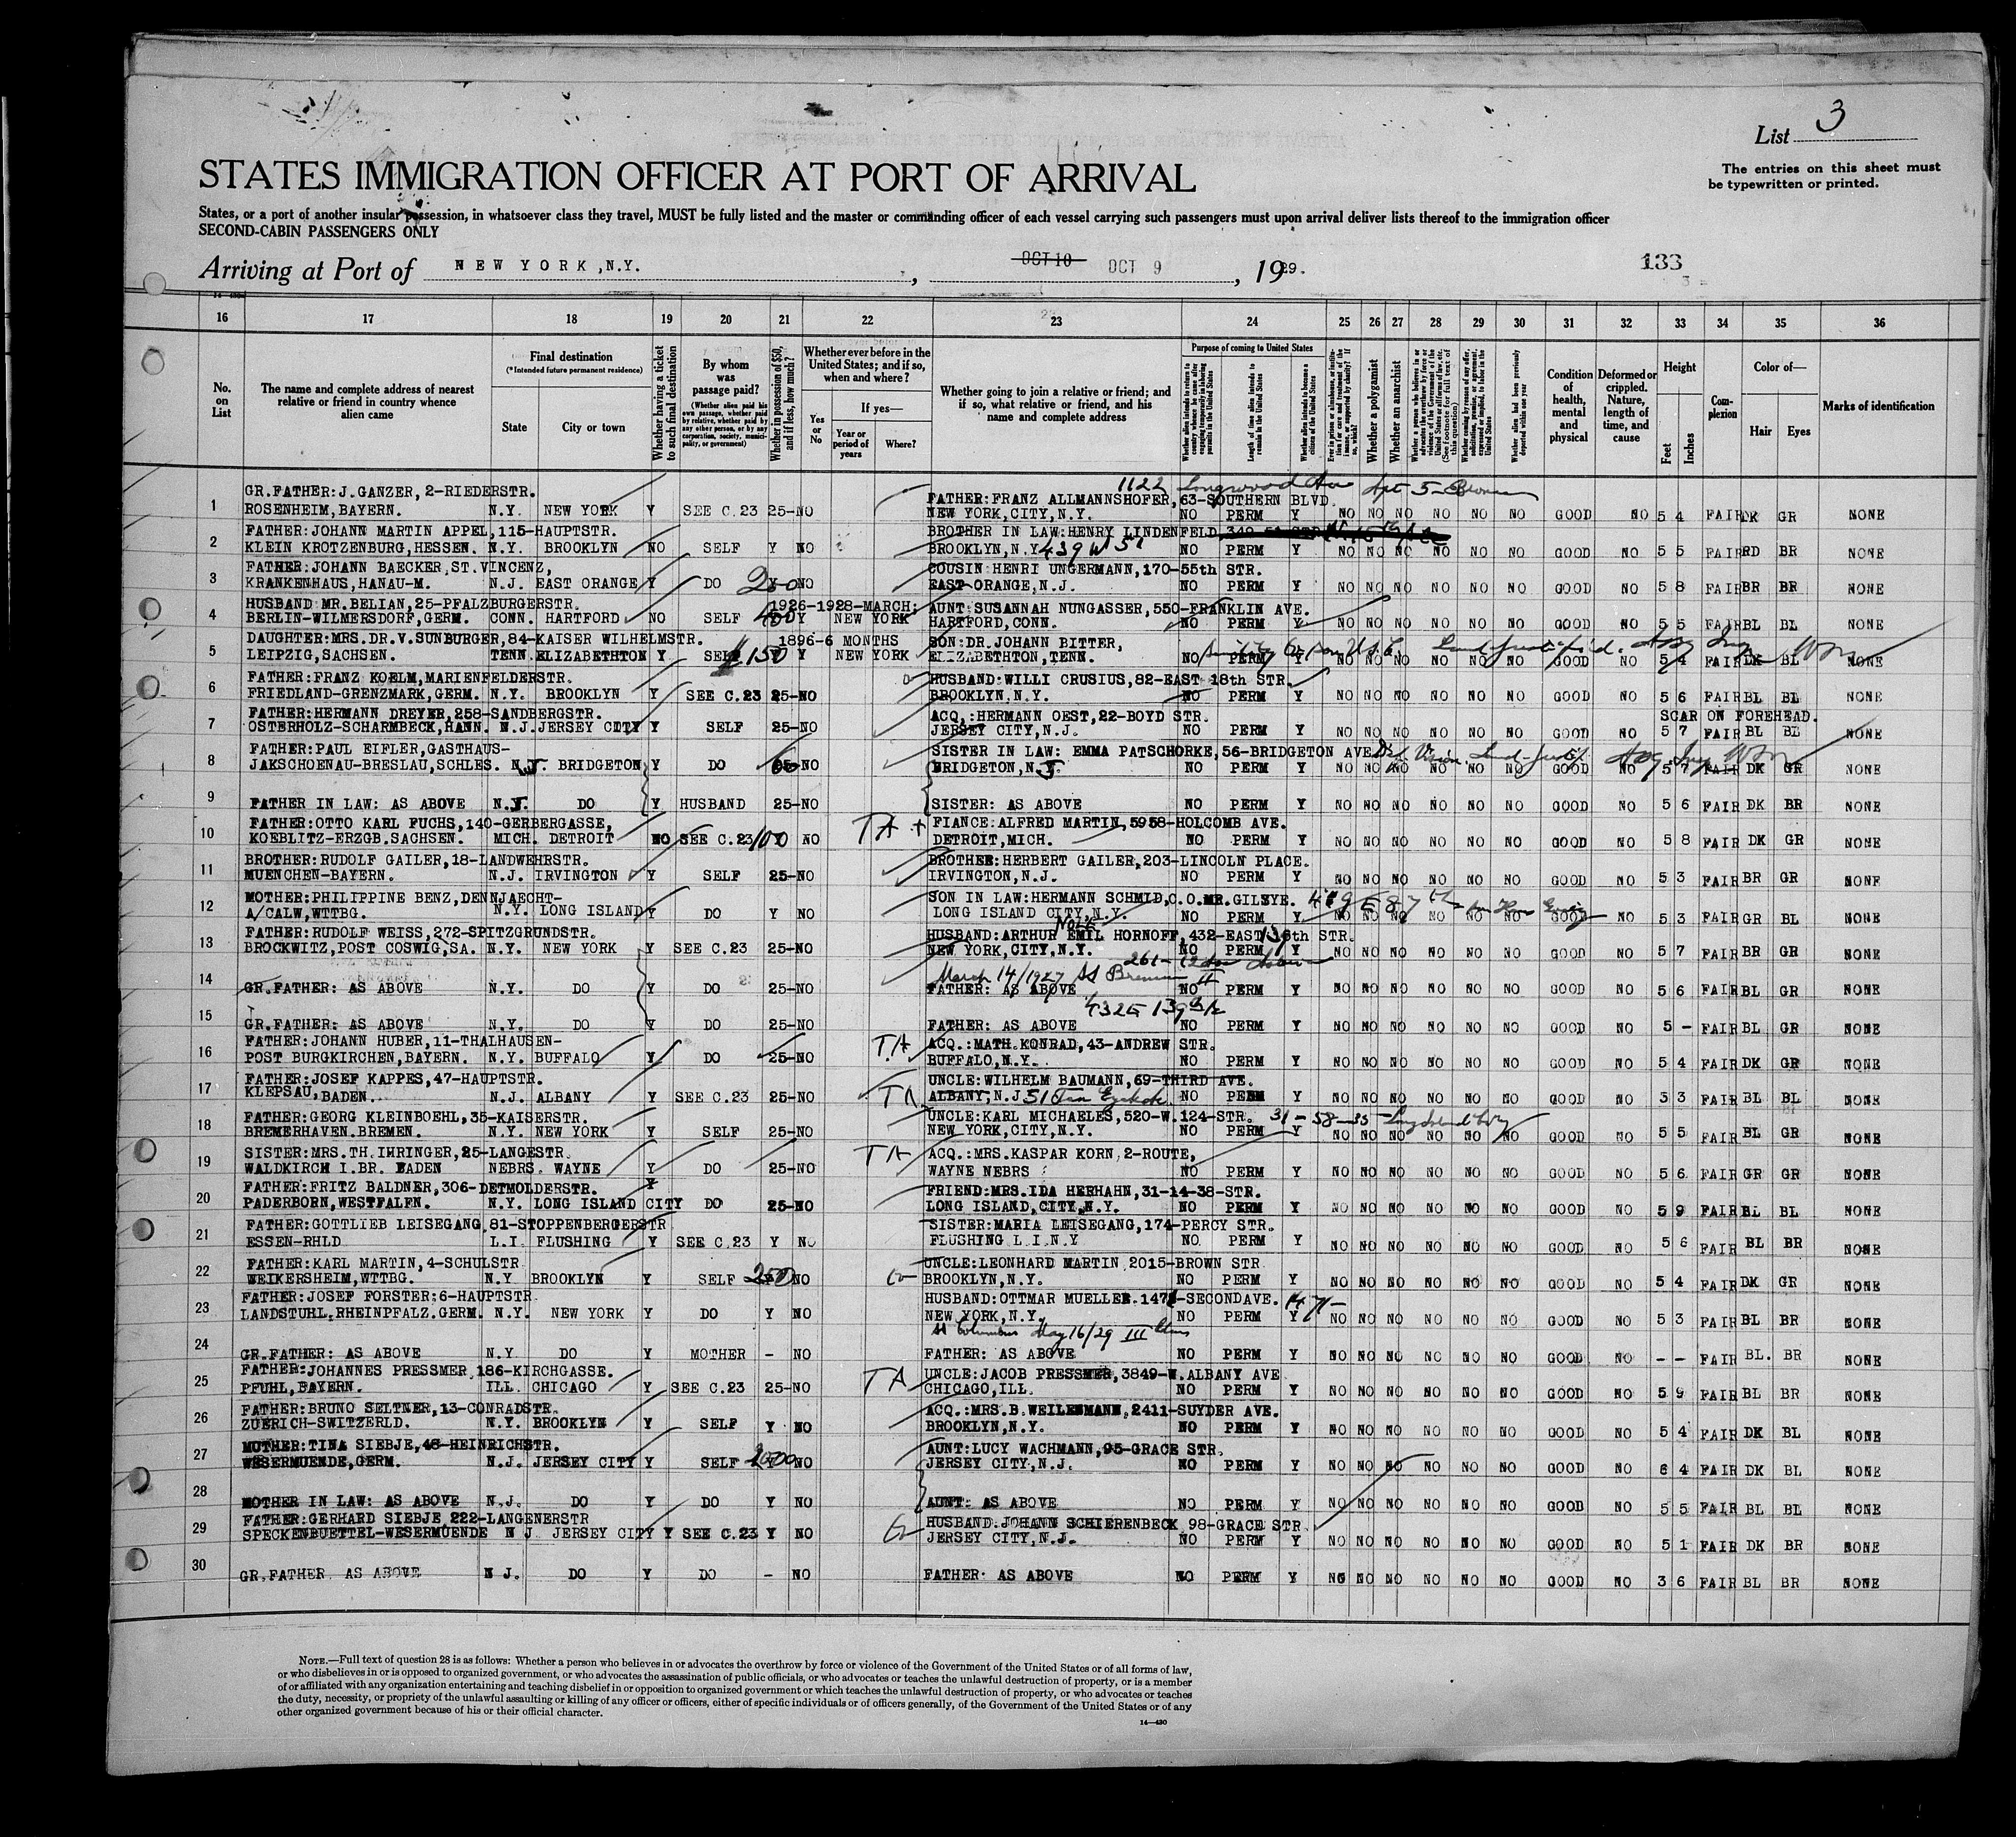 List 3
The entries on this sheet must
be typewritten or printed.
STATES IMMIGRATION OFFICER AT PORT OF ARRIVAL
States, or a port of another insular possession, in whatsoever class they travel, MUST be fully listed and the master or commanding officer of each vessel carrying such passengers must upon arrival deliver lists thereof to the immigration officer
SECOND-CABIN PASSENGERS ONLY
Arriving at Port of NEW YORK, N.Y. , OCT 10 OCT 9 , 1929.
133
16 17 18 19 20 21 22 23 24 25 26 27 28 29 30 31 32 33 34 35 36
No. on List
The name and complete address of nearest relative or friend in country whence alien came
Final destination
(*Intended future permanent residence)
State
City or town
Whether having a ticket to such final destination
By whom was passage paid?
(Whether alien paid his own passage, whether paid by relative, whether paid by any other person, or by any corporation, society, municipality, or government)
Whether in possession of $50, and if less, how much?
Whether ever before in the United States; and if so, when and where?
Yes or No
If yes—
Year or period of years
Where?
Whether going to join a relative or friend; and if so, what relative or friend, and his name and complete address
Purpose of coming to United States
Length of time alien intends to remain in the United States
Whether alien intends to become a citizen of the United States
Whether a polygamist
Whether an anarchist
Whether alien had been previously deported within one year
Condition of health, mental and physical
Deformed or crippled. Nature, length of time, and cause
Height
Feet
Inches
Complexion
Color of—
Hair
Eyes
Marks of identification
1122 Longwood Ave Apt 5-Bronx
1 GR.FATHER:J.GANZER,2-RIEDERSTR. FATHER:FRANZ ALLMANNSHOFER,63-SOUTHERN BLVD.
ROSENHEIM,BAYERN. N.Y. NEW YORK Y SEE C.23 25-NO NEW YORK,CITY,N.Y. NO PERM Y NO NO NO NO NO NO GOOD NO 5 4 FAIR DK GR NONE
2 FATHER:JOHANN MARTIN APPEL,115-HAUPTSTR. BROTHER IN LAW:HENRY LINDENFELD
KLEIN KROTZENBURG,HESSEN. N.Y. BROOKLYN NO SELF Y NO BROOKLYN,N.Y 439 W 51 NO PERM Y NO NO NO NO NO NO GOOD NO 5 5 FAIR RD BR NONE
3 FATHER:JOHANN BAECKER,ST.VINCENZ, COUSIN HENRI UNGERMANN,170-55th STR.
KRANKENHAUS,HANAU-M. N.J. EAST ORANGE Y DO 200 NO EAST ORANGE,N.J. NO PERM Y NO NO NO NO NO NO GOOD NO 5 8 FAIR BR BR NONE
4 HUSBAND MR.BELIAN,25-PFALZBURGERSTR. 1926-1928-MARCH: AUNT:SUSANNAH NUNGASSER,550-FRANKLIN AVE.
BERLIN-WILMERSDORF,GERM. CONN. HARTFORD NO SELF 400 Y NEW YORK HARTFORD,CONN. NO PERM Y NO NO NO NO NO NO GOOD NO 5 5 FAIR BL BL NONE
5 DAUGHTER:MRS.DR.V.SUNBURGER,84-KAISER WILHELMSTR. 1896-6 MONTHS SON:DR.JOHANN BITTER,
LEIPZIG,SACHSEN. TENN.ELIZABETHTON Y SELF 150 Y NEW YORK ELIZABETHTON,TENN. NO PERM Y NO NO NO NO NO NO GOOD NO 5 4 FAIR DK BL NONE
6 FATHER:FRANZ KOELM,MARIENFELDERSTR. HUSBAND:WILLI CRUSIUS,82-EAST 18th STR.
FRIEDLAND-GRENZMARK,GERM. N.Y. BROOKLYN Y SEE C.23 25-NO BROOKLYN,N.Y. NO PERM Y NO NO NO NO NO NO GOOD NO 5 6 FAIR BL BL NONE
7 FATHER:HERMANN DREYER,258-SANDBERGSTR. ACQ.:HERMANN OEST,22-BOYD STR. SCAR ON FOREHEAD.
OSTERHOLZ-SCHARMBECK,HANN. N.J.JERSEY CITY Y SELF 25-NO JERSEY CITY,N.J. NO PERM Y NO NO NO NO NO NO GOOD NO 5 7 FAIR BL BL NONE
8 FATHER:PAUL EIFLER,GASTHAUS- SISTER IN LAW: EMMA PATSCHORKE,56-BRIDGETON AVE
JAKSCHOENAU-BRESLAU,SCHLES. N.J. BRIDGETON Y DO 60 NO BRIDGETON,N.J NO PERM Y NO NO NO NO NO NO GOOD NO 5 7 FAIR DK GR NONE
9 FATHER IN LAW: AS ABOVE N.J. DO Y HUSBAND 25-NO SISTER: AS ABOVE NO PERM Y NO NO NO NO NO NO GOOD NO 5 6 FAIR DK BR NONE
10 FATHER:OTTO KARL FUCHS,140-GERBERGASSE, TA + FIANCE:ALFRED MARTIN,5958-HOLCOMB AVE.
KOEBLITZ-ERZGB.SACHSEN. MICH. DETROIT NO SEE C.23 100 NO DETROIT,MICH. NO PERM Y NO NO NO NO NO NO GOOD NO 5 8 FAIR DK GR NONE
11 BROTHER:RUDOLF GAILER,18-LANDWEHRSTR. BROTHER:HERBERT GAILER,203-LINCOLN PLACE.
MUENCHEN-BAYERN. N.J. IRVINGTON Y SELF 25-NO IRVINGTON,N.J. NO PERM Y NO NO NO NO NO NO GOOD NO 5 3 FAIR BR GR NONE
12 MOTHER:PHILIPPINE BENZ,DENNJAECHT- SON IN LAW:HERMANN SCHMID,C.O.MR.GILSYE. 419 E 87 th
A/CALW,WTTBG. N.Y. LONG ISLAND Y DO Y NO LONG ISLAND CITY,N.Y. NO PERM Y NO NO NO NO NO NO GOOD NO 5 3 FAIR GR BL NONE
13 FATHER:RUDOLF WEISS,272-SPITZGRUNDSTR. HUSBAND:ARTHUR EMIL HORNOFF,432-EAST 139th STR.
BROCKWITZ,POST COSWIG,SA. N.Y. NEW YORK Y SEE C.23 25-NO NEW YORK,CITY,N.Y. NO PERM Y NO NO NO NO NO NO GOOD NO 5 7 FAIR BR GR NONE
March 14/1927 SS Bremen II
14 GR.FATHER: AS ABOVE N.Y. DO Y DO 25-NO FATHER: AS ABOVE NO PERM Y NO NO NO NO NO NO GOOD NO 5 6 FAIR BL GR NONE
432 E 139 St
15 GR.FATHER: AS ABOVE N.Y. DO Y DO 25-NO FATHER: AS ABOVE NO PERM Y NO NO NO NO NO NO GOOD NO 5 - FAIR BL GR NONE
16 FATHER:JOHANN HUBER,11-THALHAUSEN- TA ACQ.:MATH.KONRAD,43-ANDREW STR.
POST BURGKIRCHEN,BAYERN. N.Y. BUFFALO Y DO 25-NO BUFFALO,N.Y. NO PERM Y NO NO NO NO NO NO GOOD NO 5 4 FAIR DK GR NONE
17 FATHER:JOSEF KAPPES,47-HAUPTSTR. TA UNCLE:WILHELM BAUMANN,69-THIRD AVE.
KLEPSAU,BADEN. N.J. ALBANY Y SEE C.23 25-NO ALBANY,N.J NO PERM Y NO NO NO NO NO NO GOOD NO 5 3 FAIR BL BL NONE
18 FATHER:GEORG KLEINBOEHL,35-KAISERSTR. UNCLE:KARL MICHAELES,520-W.124-STR. 31-58-35- Long Island City
BREMERHAVEN.BREMEN. N.Y. NEW YORK Y SELF 25-NO NEW YORK,CITY,N.Y. NO PERM Y NO NO NO NO NO NO GOOD NO 5 5 FAIR BL GR NONE
19 SISTER:MRS.TH.IHRINGER,25-LANGESTR. TA ACQ.:MRS.KASPAR KORN,2-ROUTE,
WALDKIRCH I.BR. BADEN NEBRS. WAYNE Y DO 25-NO WAYNE NEBRS NO PERM Y NO NO NO NO NO NO GOOD NO 5 6 FAIR GR GR NONE
20 FATHER:FRITZ BALDNER,306-DETMOLDERSTR. Y FRIEND:MRS.IDA HERHAHN,31-14-38-STR.
PADERBORN,WESTFALFN. N.Y. LONG ISLAND CITY DO 25-NO LONG ISLAND,CITY,N.Y. NO PERM Y NO NO NO NO NO NO GOOD NO 5 9 FAIR BL BL NONE
21 FATHER:GOTTLIEB LEISEGANG,81-STOPPENBERGERSTR SISTER:MARIA LEISEGANG,174-PERCY STR.
ESSEN-RHLD L.I. FLUSHING Y SEE C.23 Y NO FLUSHING L.I.N.Y NO. PERM Y NO NO NO NO NO NO GOOD NO 5 6 FAIR BL BR NONE
22 FATHER:KARL MARTIN,4-SCHULSTR UNCLE:LEONHARD MARTIN,2015-BROWN STR
WEIKERSHEIM,WTTBG. N.Y BROOKLYN Y SELF 250 NO BROOKLYN,N.Y. NO PERM Y NO NO NO NO NO NO GOOD NO 5 4 FAIR DK GR NONE
23 FATHER:JOSEF FORSTER:6-HAUPTSTR. HUSBAND:OTTMAR MUELLER.1471-SECONDAVE. 1471-
LANDSTUHL,RHEINPFALZ.GERM. N.Y. NEW YORK Y DO Y NO NEW YORK,N.Y. NO PERM Y NO NO NO NO NO NO GOOD NO 5 3 FAIR BL BR NONE
SS Columbus May 16/29 III Class
24 GR.FATHER: AS ABOVE N.Y. DO Y MOTHER - NO FATHER: AS ABOVE NO PERM Y NO NO NO NO NO NO GOOD NO - - FAIR BL. BR NONE
25 FATHER:JOHANNES PRESSMER,186-KIRCHGASSE. TA UNCLE:JACOB PRESSMER,3849-W.ALBANY AVE
PFUHL,BAYERN. ILL. CHICAGO Y SEE C.23 25-NO CHICAGO,ILL. NO PERM Y NO NO NO NO NO NO GOOD NO 5 9 FAIR BL BR NONE
26 FATHER:BRUNO SELTNER,13-CONRADSTR. ACQ.:MRS.B.WEILENMANN,2411-SUYDER AVE.
ZUERICH-SWITZERLD. N.Y. BROOKLYN Y SELF Y NO BROOKLYN,N.Y. NO PERM Y NO NO NO NO NO NO GOOD NO 5 4 FAIR DK BL NONE
27 MOTHER:TINA SIEBJE,48-HEINRICHSTR. AUNT:LUCY WACHMANN,95-GRACE STR.
WESERMUENDE,GERM. N.J. JERSEY CITY Y SELF 2000 NO JERSEY CITY,N.J. NO PERM Y NO NO NO NO NO NO GOOD NO 6 4 FAIR DK BL NONE
28 MOTHER IN LAW: AS ABOVE N.J. DO Y DO Y NO AUNT: AS ABOVE NO PERM Y NO NO NO NO NO NO GOOD NO 5 5 FAIR BL BL NONE
29 FATHER:GERHARD SIEBJE,222-LANGENERSTR HUSBAND:JOHANN SCHIERENBECK 98-GRACE STR.
SPECKENBUETTEL-WESERMUENDE N J JERSEY CITY Y SEE C.23 Y NO JERSEY CITY,N.J. NO PERM Y NO NO NO NO NO NO GOOD NO 5 1 FAIR DK BR NONE
30 GR.FATHER AS ABOVE N J. DO Y DO - NO FATHER: AS ABOVE NO PERM Y NO NO NO NO NO NO GOOD NO 3 6 FAIR BL BR NONE
NOTE.—Full text of question 28 is as follows: Whether a person who believes in or advocates the overthrow by force or violence of the Government of the United States or of all forms of law,
or who disbelieves in or is opposed to organized government, or who advocates the assassination of public officials, or who advocates or teaches the unlawful destruction of property, or is a member
of or affiliated with any organization entertaining and teaching disbelief in or opposition to organized government or which teaches the unlawful destruction of property, or who advocates or teaches
the duty, necessity, or propriety of the unlawful assaulting or killing of any officer or officers, either of specific individuals or of officers generally, of the Government of the United States or of any
other organized government because of his or their official character.
14—430